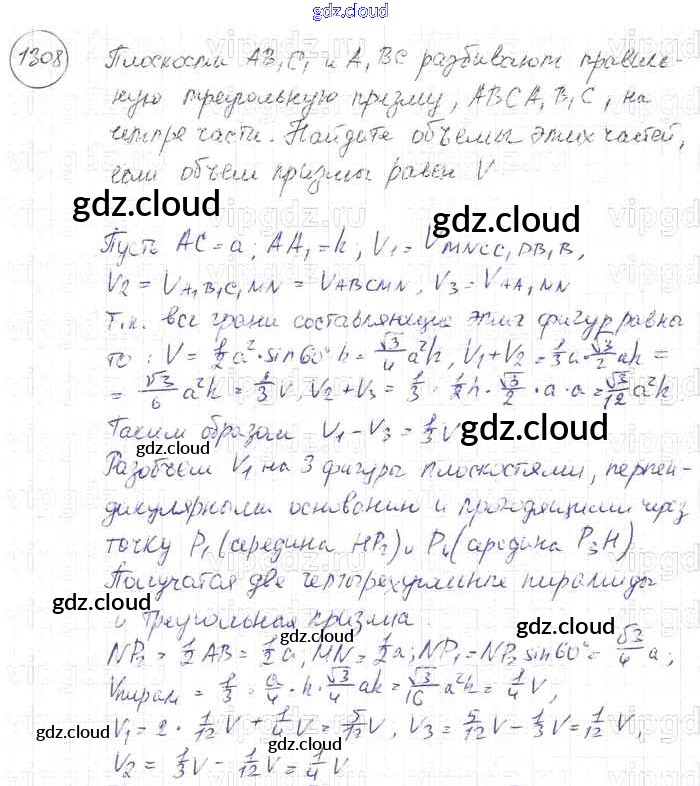 gdz.cloud
1308 Плоскости AB₁C₁ и A₁BC разбивают правиль-
ную треугольную призму, ABCA₁B₁C₁ на
четыре части. Найдите объёмы этих частей,
если объём призмы равен V
gdz.cloud
gdz.cloud
Пусть AC = a; AA₁ = h; V₁ = V MNCC₁DB₁B,
V₂ = V A₁B₁C₁MN = V ABCMN, V₃ = V AA₁NN
Т.к. все грани составляющие этих фигур равны
то: V = 1/2 a²·sin60°h = √3/4 a²h, V₁+V₂ = 1/3 a·√3/2 ah =
= √3/6 a²h = 1/3 V, V₂+V₃ = 1/3 · 1/2 h · √3/2 · a·a = √3/12 a²h.
gdz.cloud
gdz.cloud
Таким образом V₁ - V₃ = 1/3 V
Разобьем V₁ на 3 фигуры плоскостями, перпен-
дикулярными основанию и проходящими через
точку P₁ (середина HP₂) и P₄ (середина P₃H)
Получатся две четырехугольные пирамиды
gdz.cloud
и треугольная призма.
gdz.cloud
gdz.cloud
NP₂ = 1/2 AB = 1/2 a; MN = 1/2 a; NP₁ = NP₂ sin60° = √3/4 a;
Vпирам = 1/3 · a/4 · h · √3/4 ak = √3/16 a²h = 1/4 V,
V₁ = 2 · 1/12 V + 1/4 V = 5/12 V, V₃ = 5/12 V - 1/3 V = 1/12 V,
gdz.cloud
gdz.cloud
V₂ = 1/3 V - 1/12 V = 1/4 V